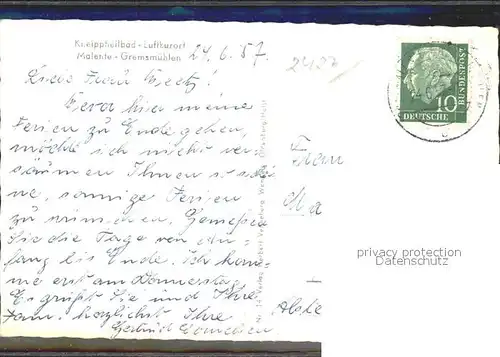 Kneippheilbad - Luftkurort
Malente - Gremsmühlen
24.6.57
Liebe Frau
Bevor hier meine
Ferien zu Ende gehen,
möchte ich nicht ver-
säumen Ihnen
ne, sonnige Ferien
zu wünschen. Genießen
Sie die Tage von An-
fang bis Ende. Ich kom-
me erst am Donnerstag.
Es grüßt Sie und Ihre
Fam. herzlichst Ihre
Gertrud
Frau
DEUTSCHE
BUNDESPOST
10
privacy protection
Datenschutz